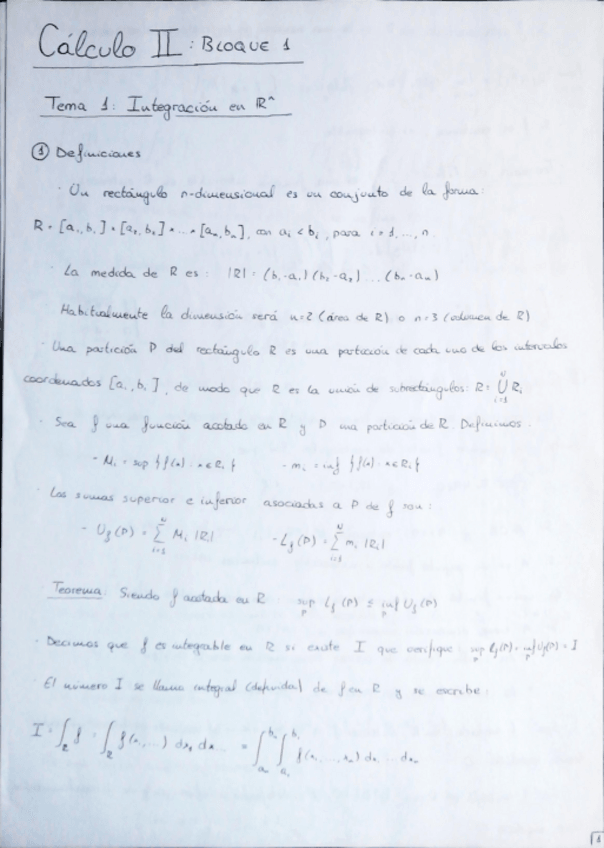 Cálculo II: BLOQUE 1
Tema 1: Integración en ℝⁿ
① Definiciones
· Un rectángulo n-dimensional es un conjunto de la forma:
R = [a₁, b₁] × [a₂, b₂] × ... × [aₙ, bₙ], con aᵢ < bᵢ, para i = 1, ..., n.
· La medida de R es: |R| = (b₁-a₁)(b₂-a₂)...(bₙ-aₙ)
Habitualmente la dimensión será n=2 (área de R) o n=3 (volumen de R)
· Una partición P del rectángulo R es una partición de cada uno de los intervalos
coordenados [aᵢ, bᵢ], de modo que R es la unión de subrectángulos: R = ⋃ᵢ₌₁ᴺ Rᵢ
· Sea f una función acotada en R y P una partición de R. Definimos:
- Mᵢ = sup {f(x): x ∈ Rᵢ} - mᵢ = inf {f(x): x ∈ Rᵢ}
· Las sumas superior e inferior asociadas a P de f son:
- U_f(P) = ∑ᵢ₌₁ᴺ Mᵢ |Rᵢ| - L_f(P) = ∑ᵢ₌₁ᴺ mᵢ |Rᵢ|
· Teorema: Siendo f acotada en R: sup_P L_f(P) ≤ inf_P U_f(P)
· Decimos que f es integrable en R si existe I que verifique: sup_P L_f(P) = inf_P U_f(P) = I
· El número I se llama integral (definida) de f en R y se escribe:
I = ∫_R f = ∫_R f(x₁, ...) dx₁ dx... = ∫_{aₙ}^{bₙ} ∫_{a₁}^{b₁} f(x₁, ..., xₙ) dx₁ ... dxₙ
1